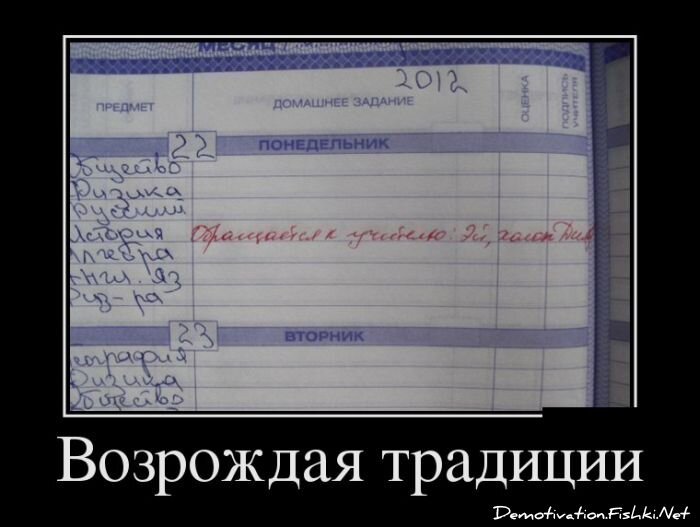 МЕСЯЦ
2012
ПРЕДМЕТ
ДОМАШНЕЕ ЗАДАНИЕ
ОЦЕНКА
ПОДПИСЬ УЧИТЕЛЯ
22 ПОНЕДЕЛЬНИК
Общество
Физика
Русский
История Обращается к учителю: Эй, холоп
Алгебра
Англ. яз
Физ-ра
23 ВТОРНИК
География
Физика
Общество
Возрождая традиции
Demotivation.Fishki.Net